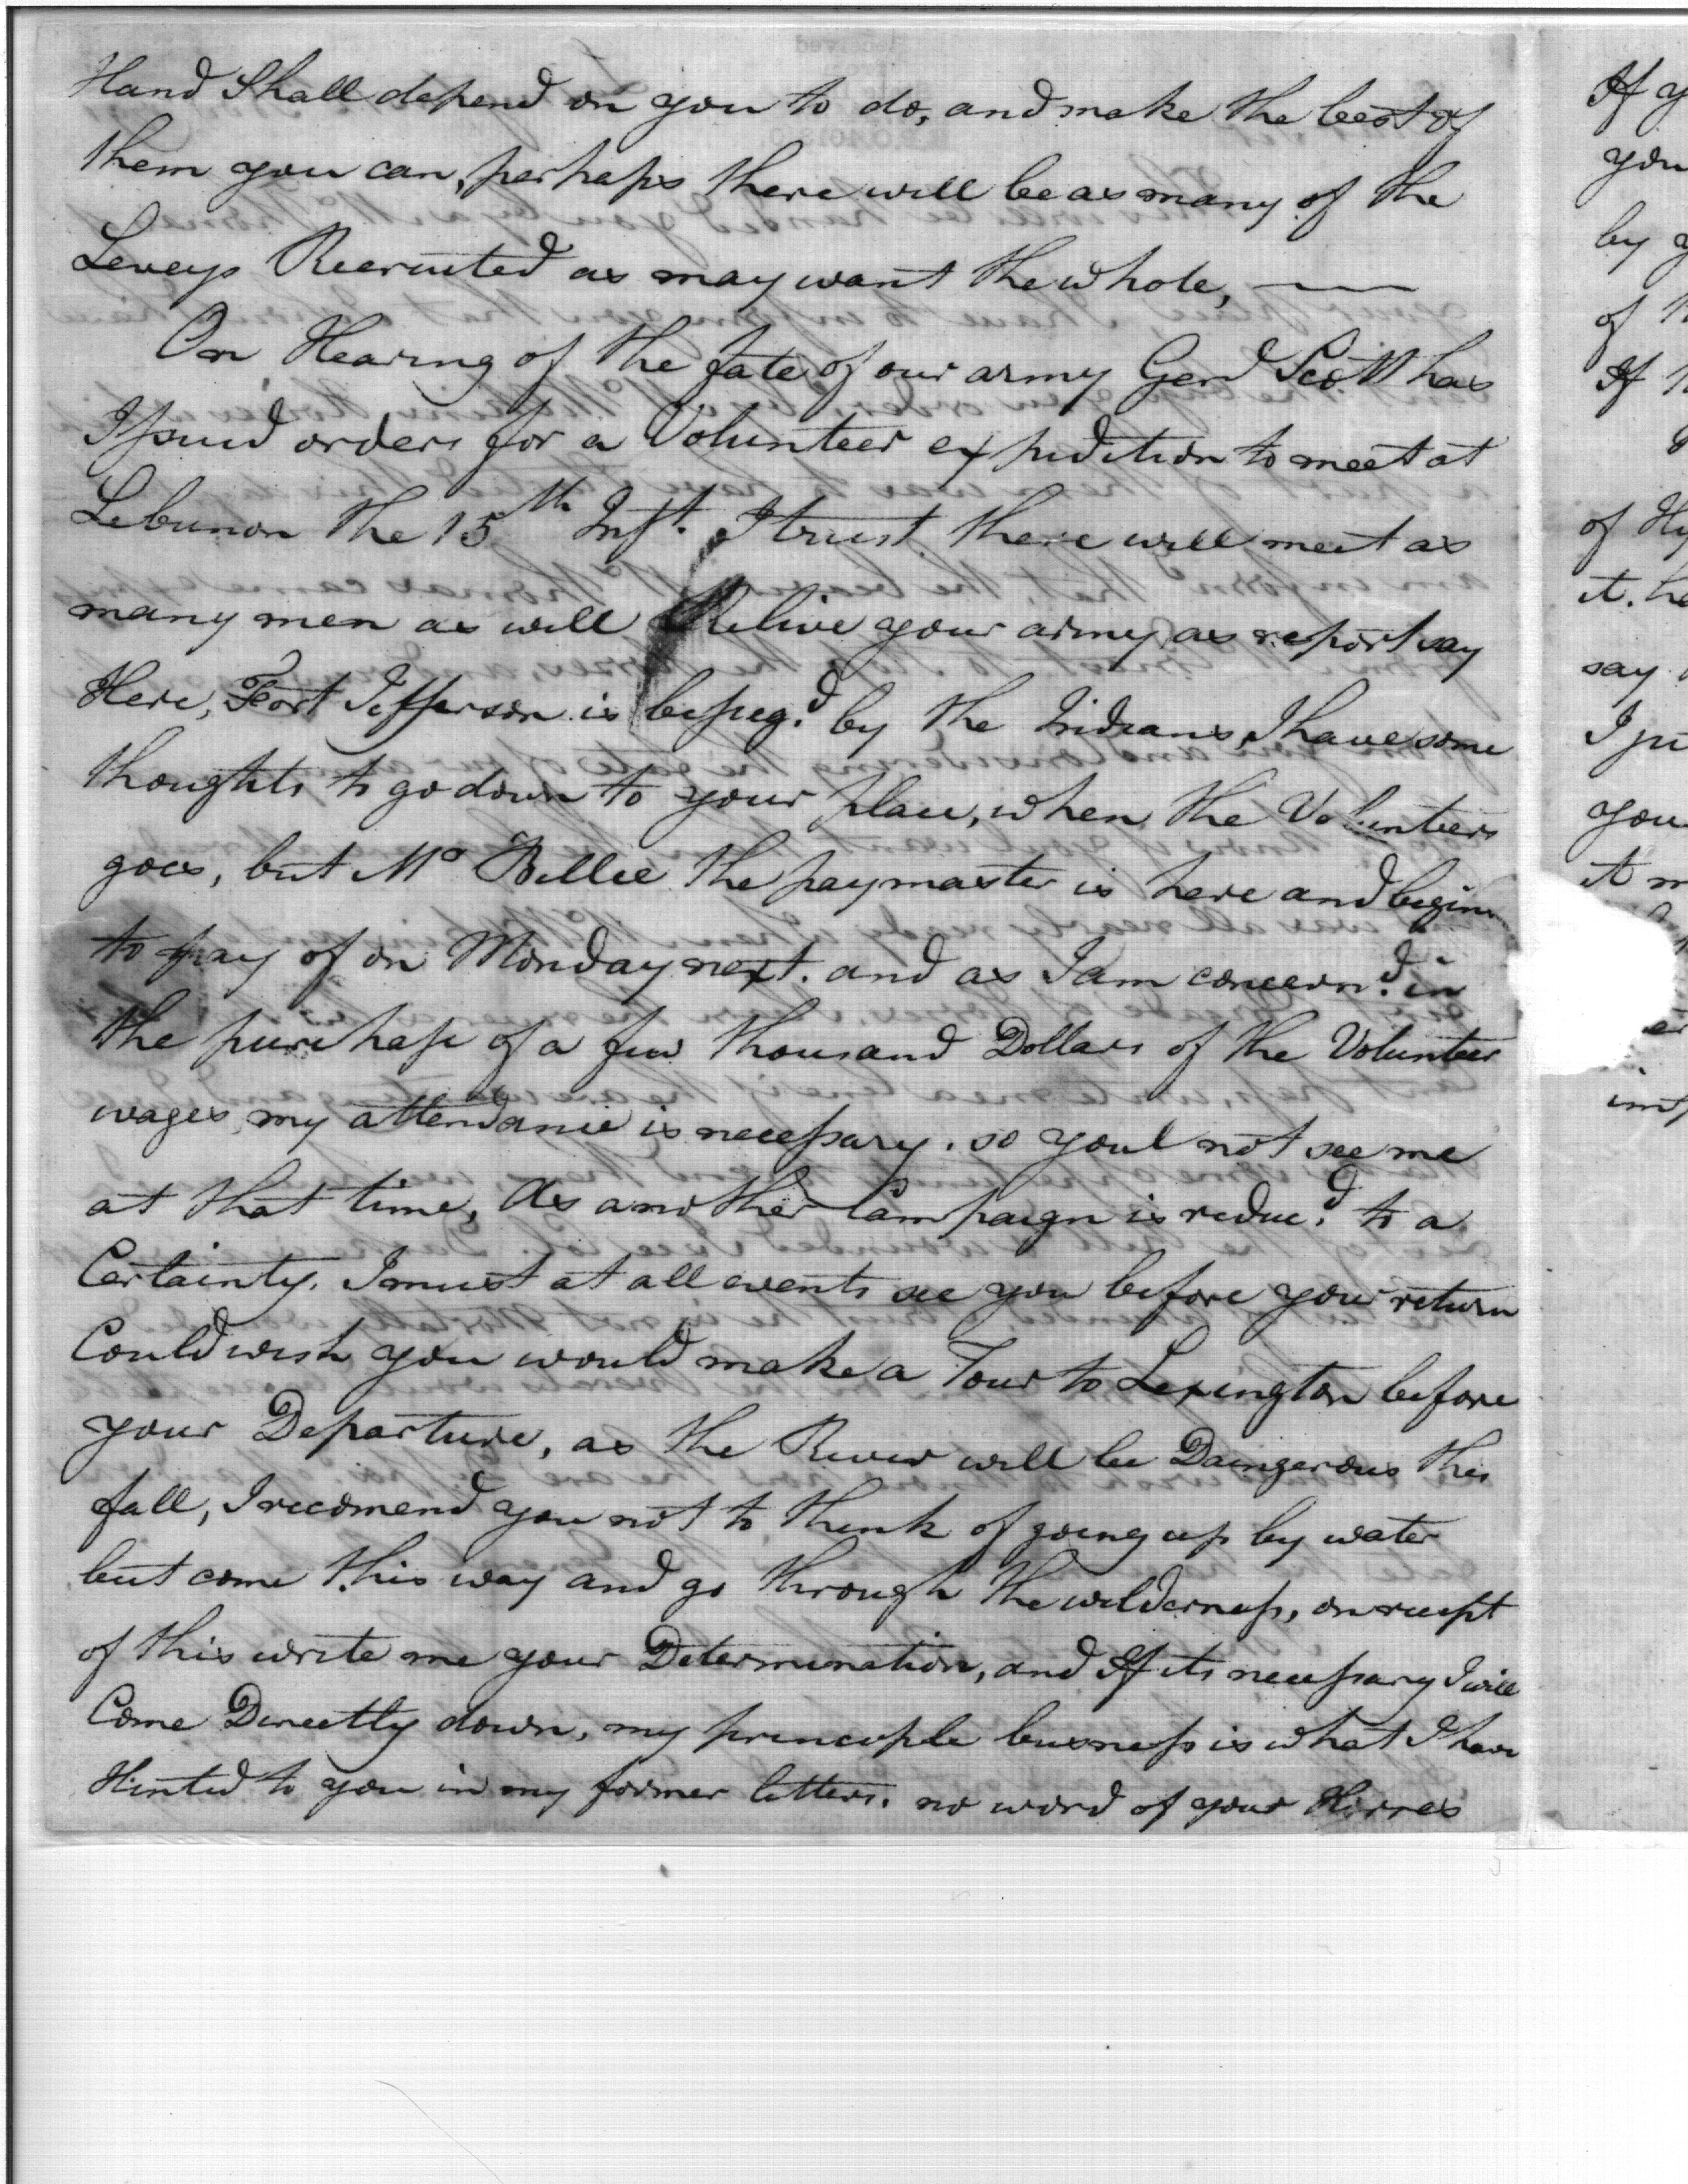 Hand Shall depend on you to do, and make the best of
them you can, perhaps there will be as many of the
Leveys Recruited as may want the whole,
On Hearing of the fate of our army Genl Scott has
Issued orders for a Volunteer expedition to meet at
Lebunon the 15th Inst. I trust there will meet as
many men as will Relive your army as report say
Here, Fort Jefferson is besseg.d by the Indians, I have some
thoughts to go down to your place, when the Volunteers
goes, but Mr Bellee the paymaster is here and begins
to pay of on Monday next. and as I am concern.d in
the purchase of a few thousand Dollars of the Volunteer
wages, my attendance is necessary. so youl not see me
at that time, As another Campaign is reduc.d to a
Certainty. I must at all events see you before your return
Could wish you would make a Tour to Lexington before
your Departure, as the River will be Daingerous this
fall, I reccomend you not to think of going up by water
but come this way and go through the wilderness, on recept
of this write me your Determination, and If its necessary I will
Come Directly down, my principle business is what I have
Hinted to you in my former letters. no word of your Horses
If
you
by
of
If
of
it. he
say
you
it